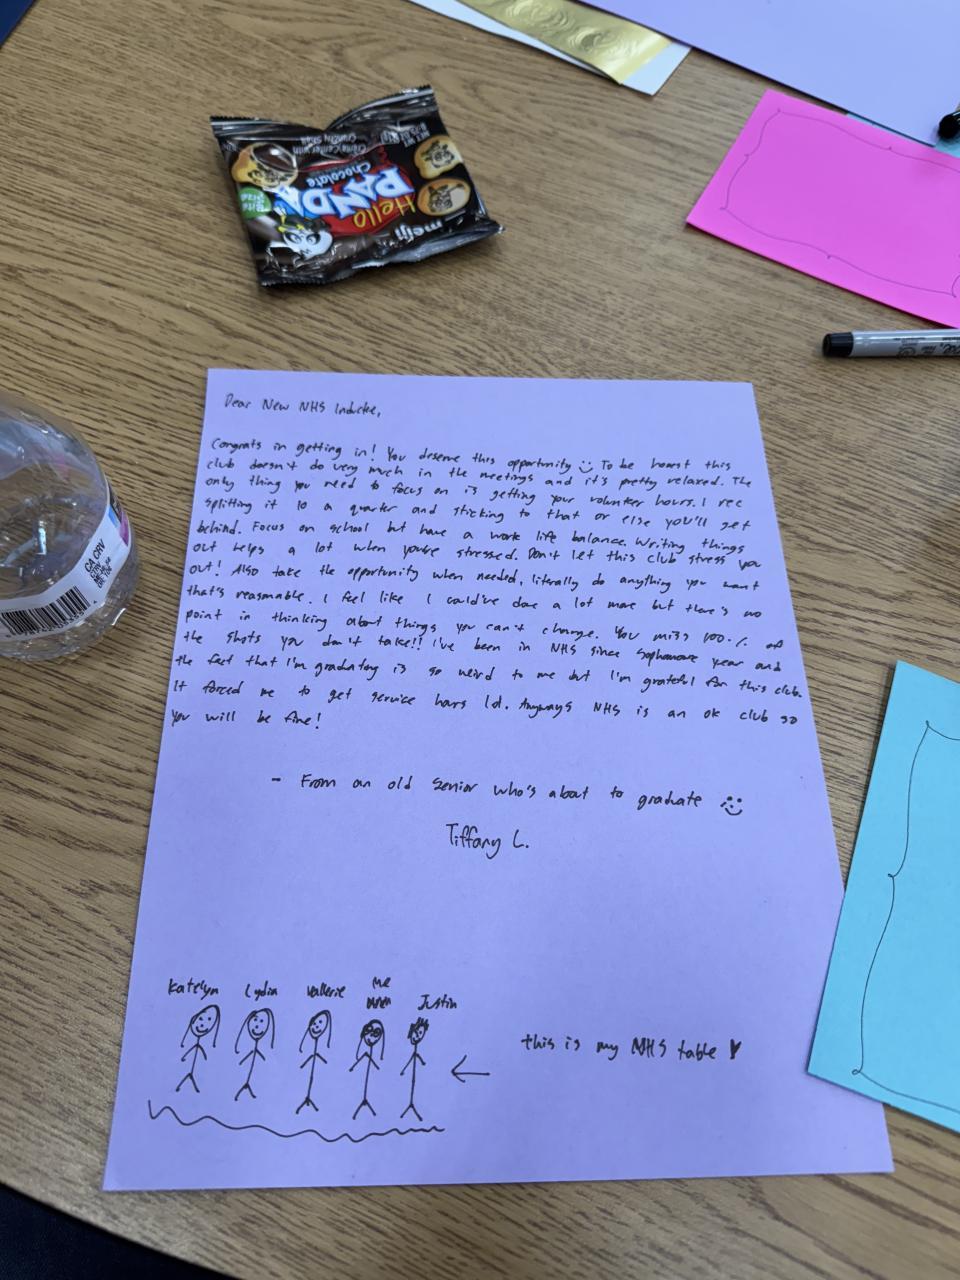 meiji
Hello
PANDA
Chocolate
Crème Center with
Crunchy Shell
Bite
Size
CA CRV
Dear New NHS Inductee,
Congrats in getting in! You deserve this opportunity :) To be honest this
club doesn't do very much in the meetings and it's pretty relaxed. The
only thing you need to focus on is getting your volunteer hours. I rec
splitting it 10 a quarter and sticking to that or else you'll get
behind. Focus on school but have a work life balance. Writing things
out helps a lot when you're stressed. Don't let this club stress you
out! Also take the opportunity when needed, literally do anything you want
that's reasonable. I feel like I could've done a lot more but there's no
point in thinking about things you can't change. You miss 100% of
the shots you don't take!! I've been in NHS since sophomore year and
the fact that I'm graduating is so weird to me but I'm grateful for this club.
It forced me to get service hours lol. Anyways NHS is an ok club so
you will be fine!
- From an old senior who's about to graduate :)
Tiffany L.
Katelyn Lydia Vallerie Me Justin
this is my NHS table ♥